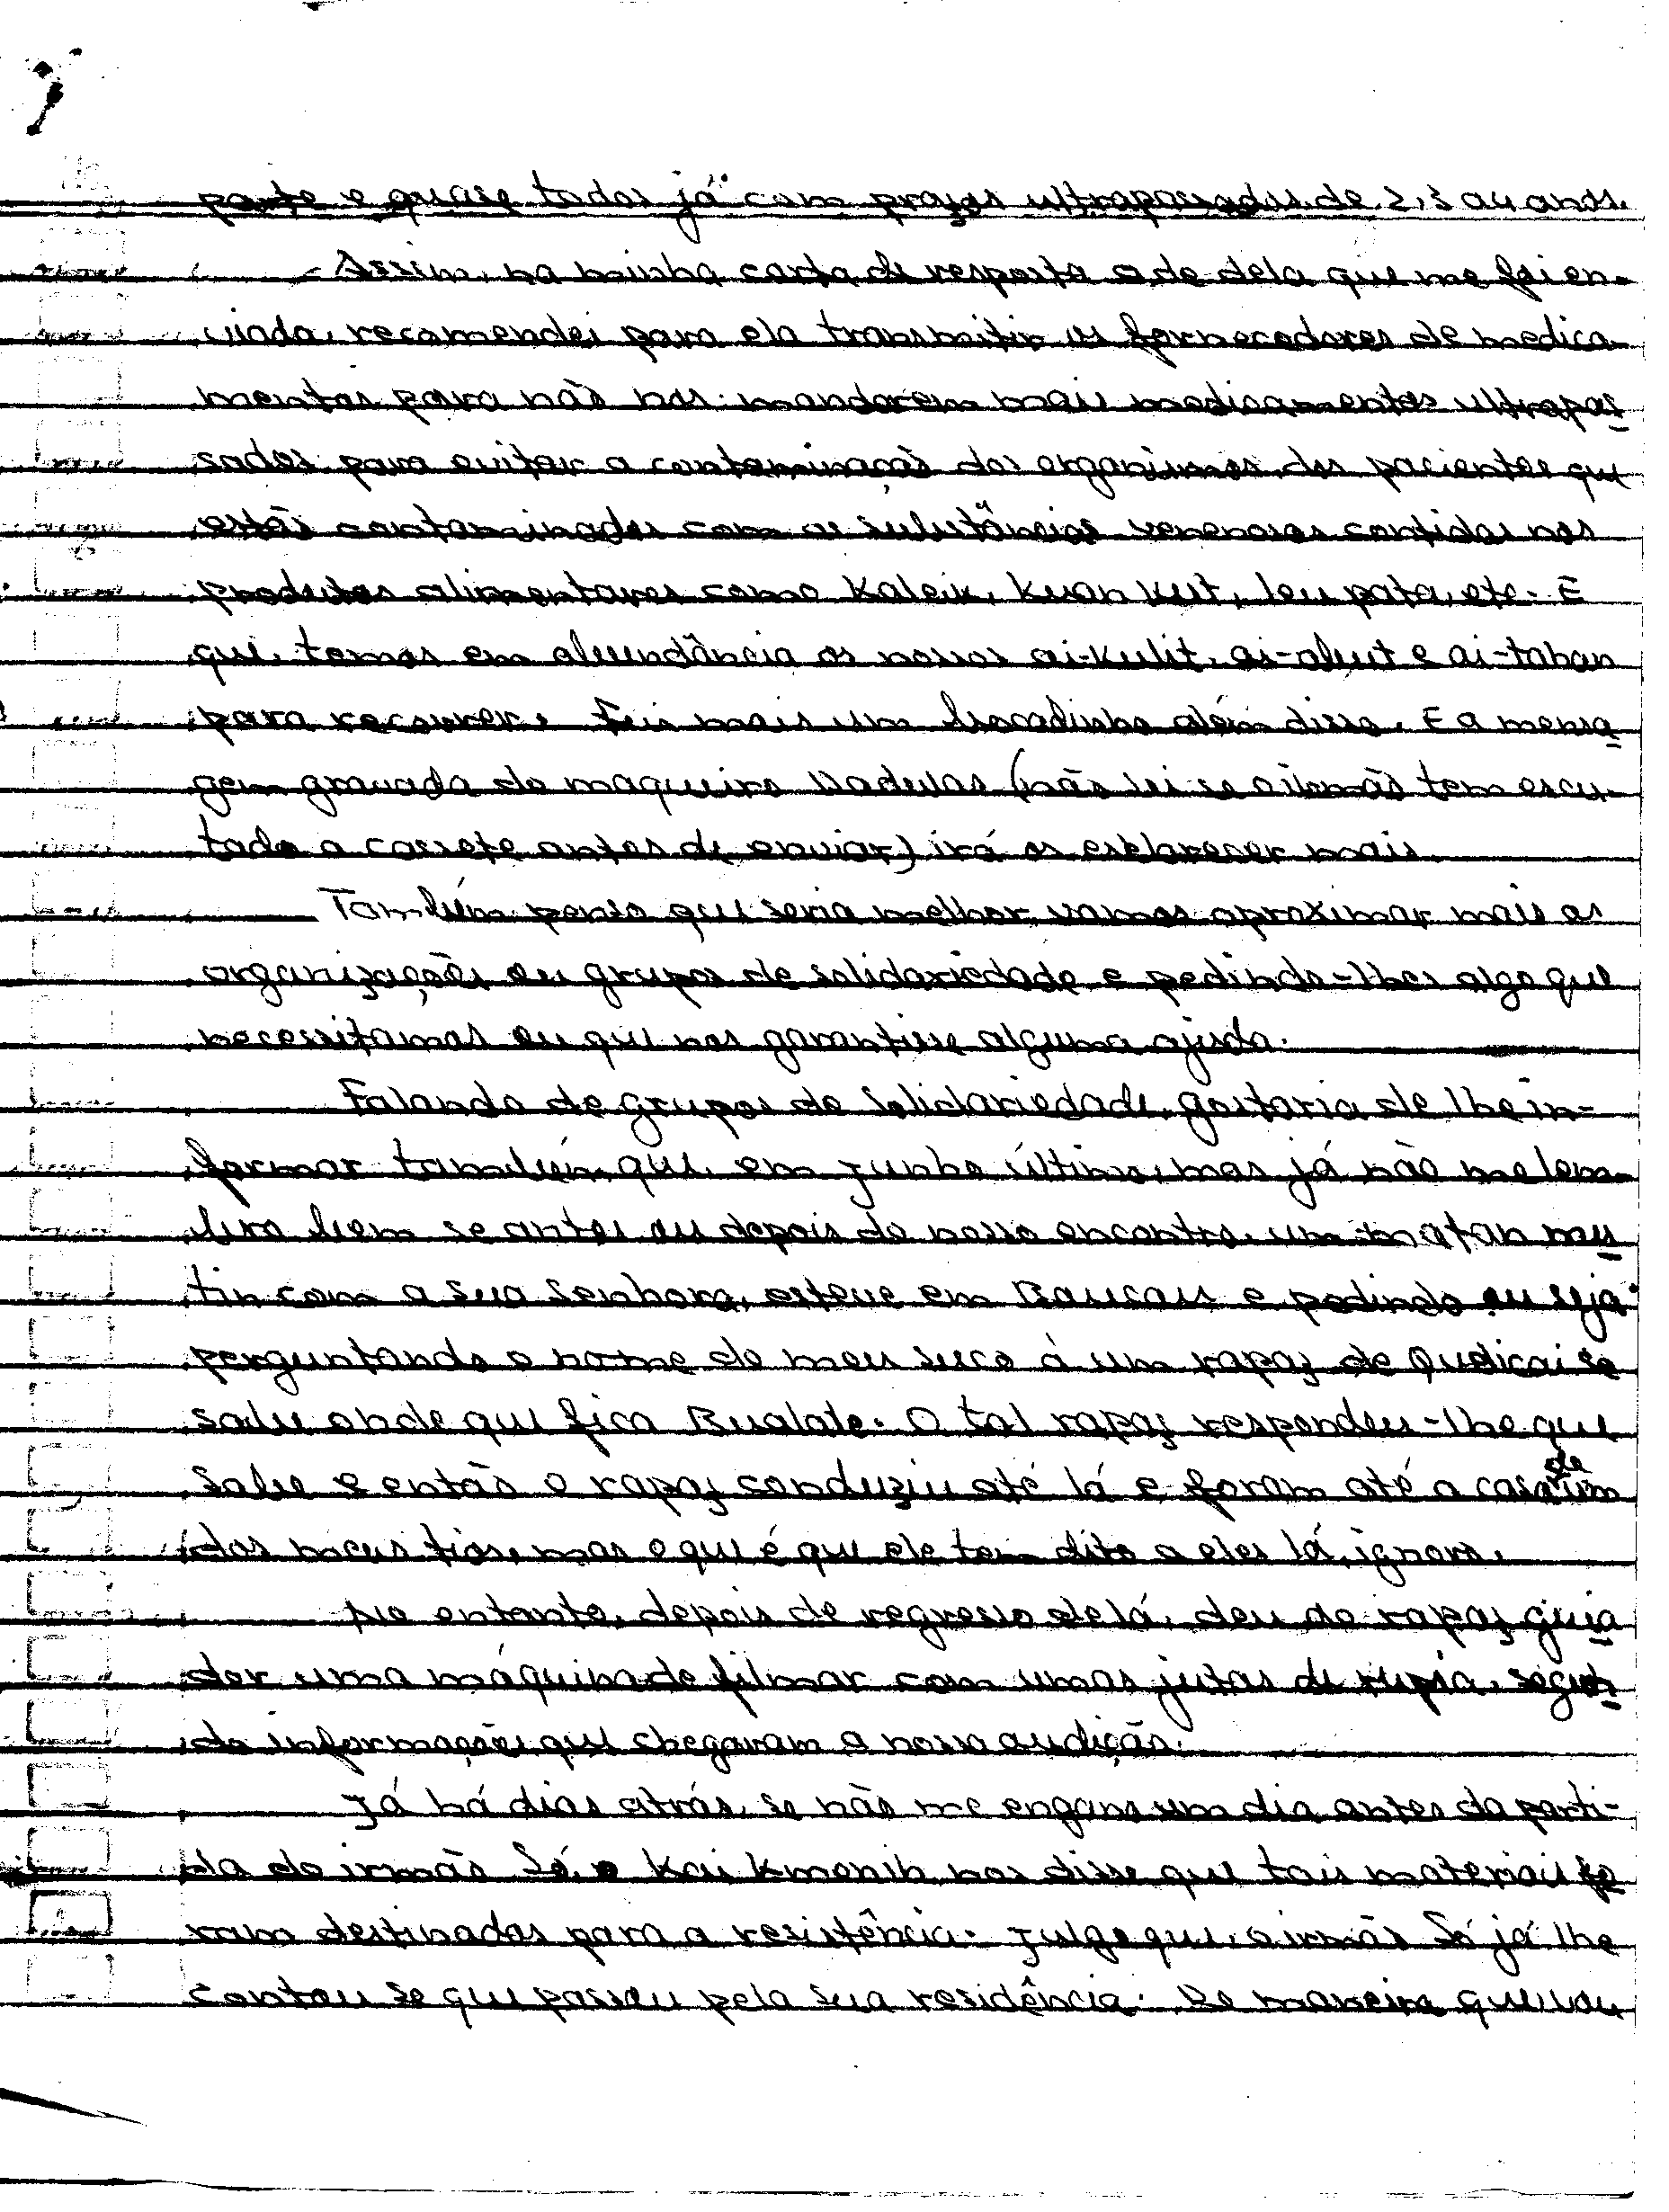 parte e quase todos já com prazos ultrapassados de 2, 3 ou anos.
Assim, na minha carta de resposta a de dela que me foi en-
viada, recomendei para ela transmitir os fornecedores de medica-
mentos para não nos mandarem mais medicamentos ultrapas
sados para evitar a contaminação dos organismos dos pacientes que
estão contaminados com as substâncias venenosas contidas nos
produtos alimentares como Kaleik, Kuan Kut, leu pata, etc. É
que, temos em abundância os nossos ai-kulit, ai-abut e ai-tahan
para recorrer. Foi mais um bocadinho além disso. E a mensa
gem gravada do maqueiro (não sei se o irmão tem escu-
tado a cassete antes de enviar) irá os esclarecer mais.
Também penso que seria melhor vamos aproximar mais as
organizações ou grupos de solidariedade e pedindo-lhes algo que
necessitamos ou que nos garantisse alguma ajuda.
Falando de grupos de solidariedade, gostaria de lhe in-
formar também, que, em Junho último, mas já não me lem-
bro bem se antes ou depois do nosso encontro, um matan
tin com a sua senhora, esteve em Baucau e pedindo ou seja
perguntando o nome do meu suco à um rapaz de se
sabe onde que fica Bualale. O tal rapaz respondeu-lhe que
sabe e então o rapaz conduziu até lá e foram até a casa de um
dos meus tios, mas o que é que ele tem dito a eles lá, ignoro.
No entanto, depois de regresso de lá, deu ao rapaz guia
dor uma máquina de filmar com umas jutas de rupia, segun
do informações que chegaram a nossa audição.
Já há dias atrás, se não me engano um dia antes da parti-
da do irmão Sá, o Kai Kmanih nos disse que tais materiais fo
ram destinados para a resistência. Julgo que, o irmão Sá já lhe
contou se que passou pela sua residência. De maneira que, vou